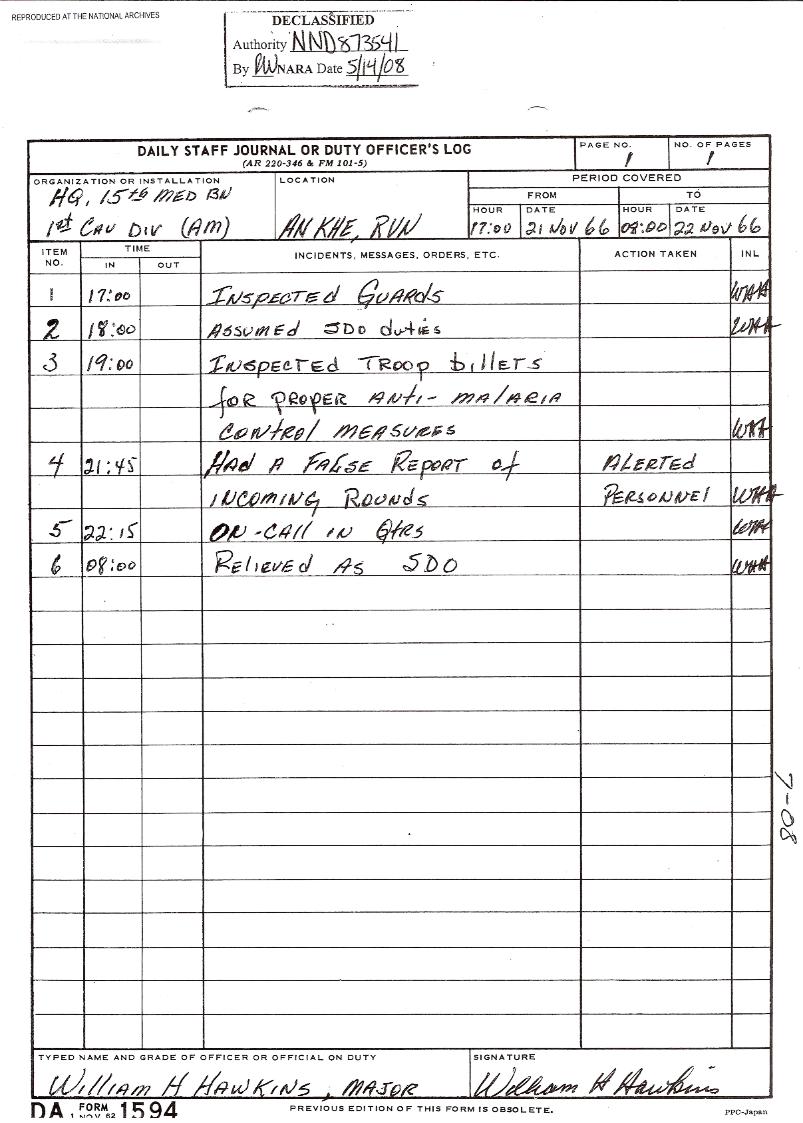 REPRODUCED AT THE NATIONAL ARCHIVES
DECLASSIFIED
Authority NND873541
By NARA Date 5/14/08
DAILY STAFF JOURNAL OR DUTY OFFICER'S LOG
(AR 220-346 & FM 101-5)
PAGE NO.
1
NO. OF PAGES
1
ORGANIZATION OR INSTALLATION
HQ, 15th MED BN
1st CAV DIV (AM)
LOCATION
AN KHE, RVN
PERIOD COVERED
FROM
TO
HOUR DATE HOUR DATE
17:00 21 NOV 66 08:00 22 NOV 66
ITEM NO.
TIME
IN OUT
INCIDENTS, MESSAGES, ORDERS, ETC.
ACTION TAKEN
INL
1 17:00 INSPECTED GUARDS WHH
2 18:00 ASSUMED SDO duties WHH
3 19:00 INSPECTED TROOP billETS
for PROPER ANTI-MALARIA
CONTROL MEASURES WHH
4 21:45 HAD A FALSE REPORT of ALERTED
INCOMING ROUNDS PERSONNEL WHH
5 22:15 ON-CALL IN QTRS WHH
6 08:00 RELIEVED AS SDO WHH
7-08
TYPED NAME AND GRADE OF OFFICER OR OFFICIAL ON DUTY
WILLIAM H HAWKINS, MAJOR
SIGNATURE
William H Hawkins
DA FORM 1 NOV 62 1594
PREVIOUS EDITION OF THIS FORM IS OBSOLETE.
PPC-Japan